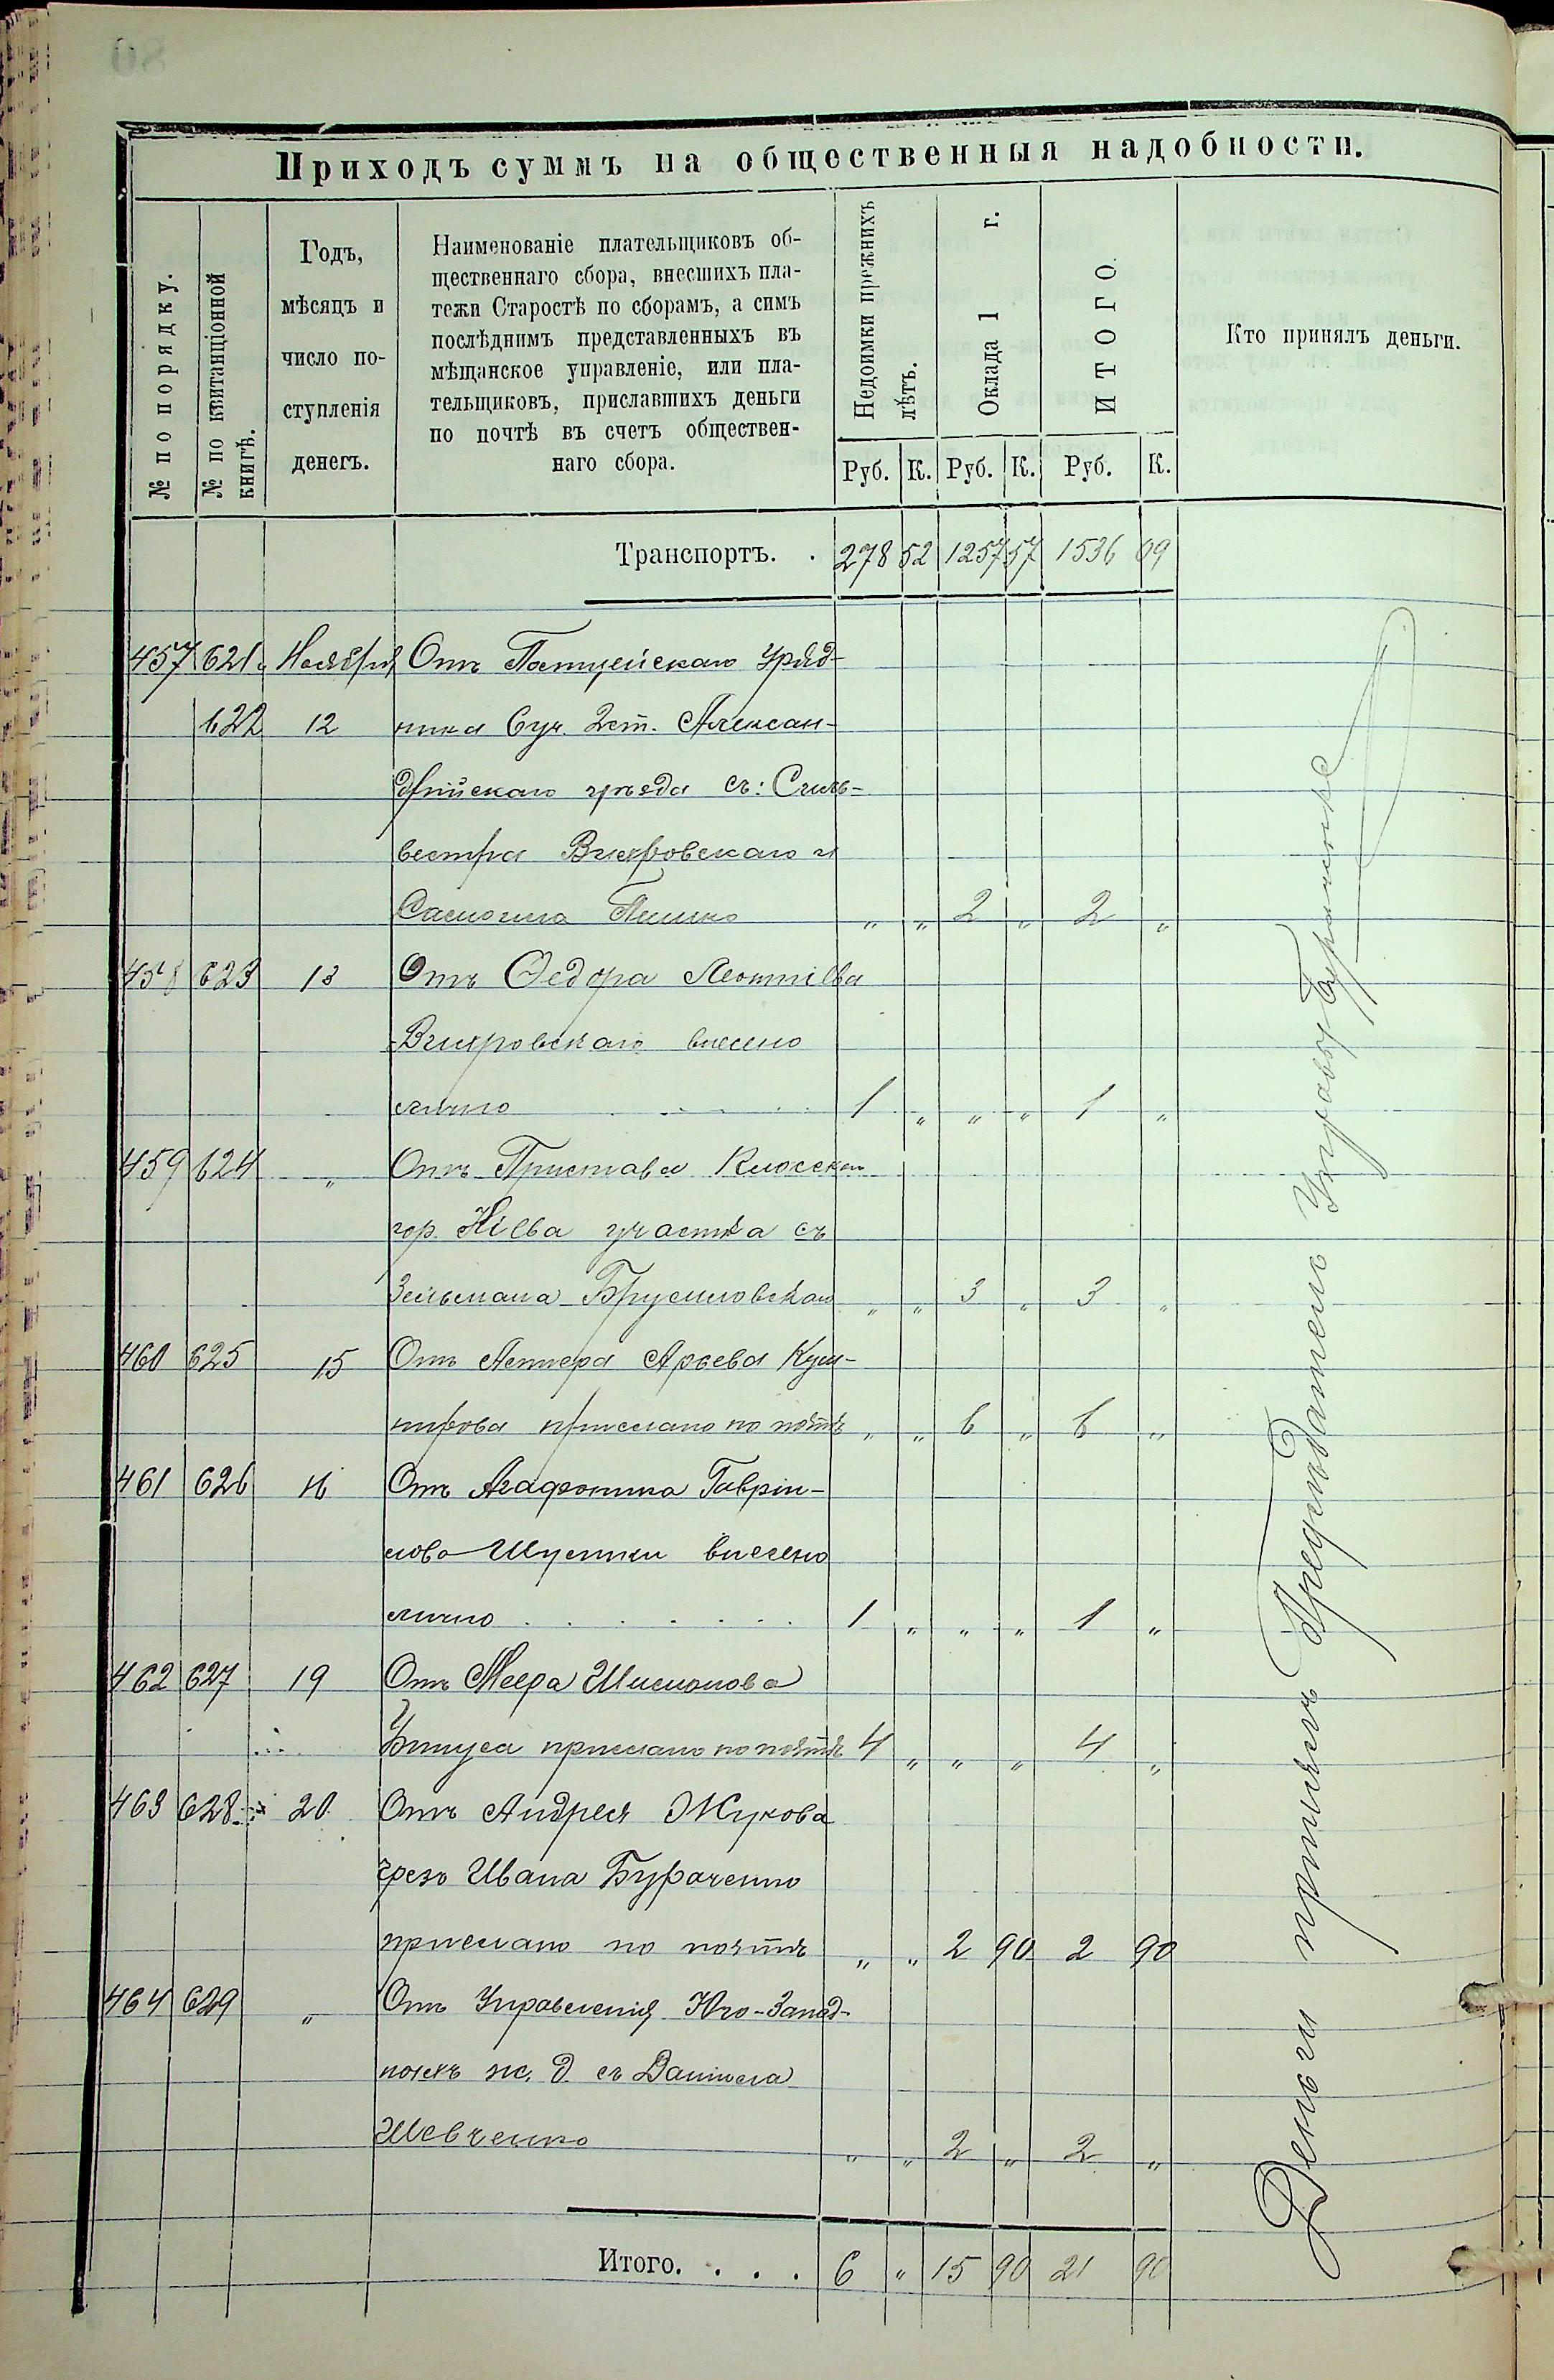 Приходъ суммъ на общественныя надобности.
№ по порядку.
№ по квитанціонной
книгѣ.
Годъ,
мѣсяцъ и
число по-
ступленія
денегъ.
Наименованіе плательщиковъ об-
щественнаго сбора, внесшихъ пла-
тежи Старостѣ по сборамъ, а симъ
послѣднимъ представленныхъ въ
мѣщанское управленіе, или пла-
тельщиковъ, приславшихъ деньги
по почтѣ въ счетъ обществен-
наго сбора.
Недоимки прежнихъ
лѣтъ.
Оклада 1 г.
ИТОГО.
Кто принялъ деньги.
Руб. К. Руб. К. Руб. К.
Транспортъ. . 278 52 1257 57 1536 09
457 621 Ноября Отъ Полицейскаго Уряд-
622 12 ника 6 уч. 2 ст. Алексан-
дрійскаго уѣзда съ: Силь-
вестра Вихровскаго и
Самоила " " 2 " 2 "
458 623 13 Отъ Федора Леонтіева
Вихровскаго внесено
лично 1 " " " 1 "
459 624 " Отъ Пристава
гор. Кіева участка съ
Зельмана Брусиловскаго " " 3 " 3 "
460 625 15 Отъ Арьева Куш-
нирова прислано по почтѣ " " 6 " 6 "
461 626 16 Отъ Агафоника Гаврі-
лова внесено
лично . . . . . . 1 " " " 1 "
462 627 19 Отъ Меера Шимонова
прислано по почтѣ 4 " " " 4 "
463 628 20 Отъ Андрея Жукова
чрезъ Ивана Бураченко
прислано по почтѣ " " 2 90 2 90
464 629 " Отъ Управленія Юго-Запад-
ныхъ ж. д. съ Даніила
Шевченко " " 2 " 2 "
Итого. . . . 6 " 15 90 21 90
Деньги принялъ Предсѣдатель Управы